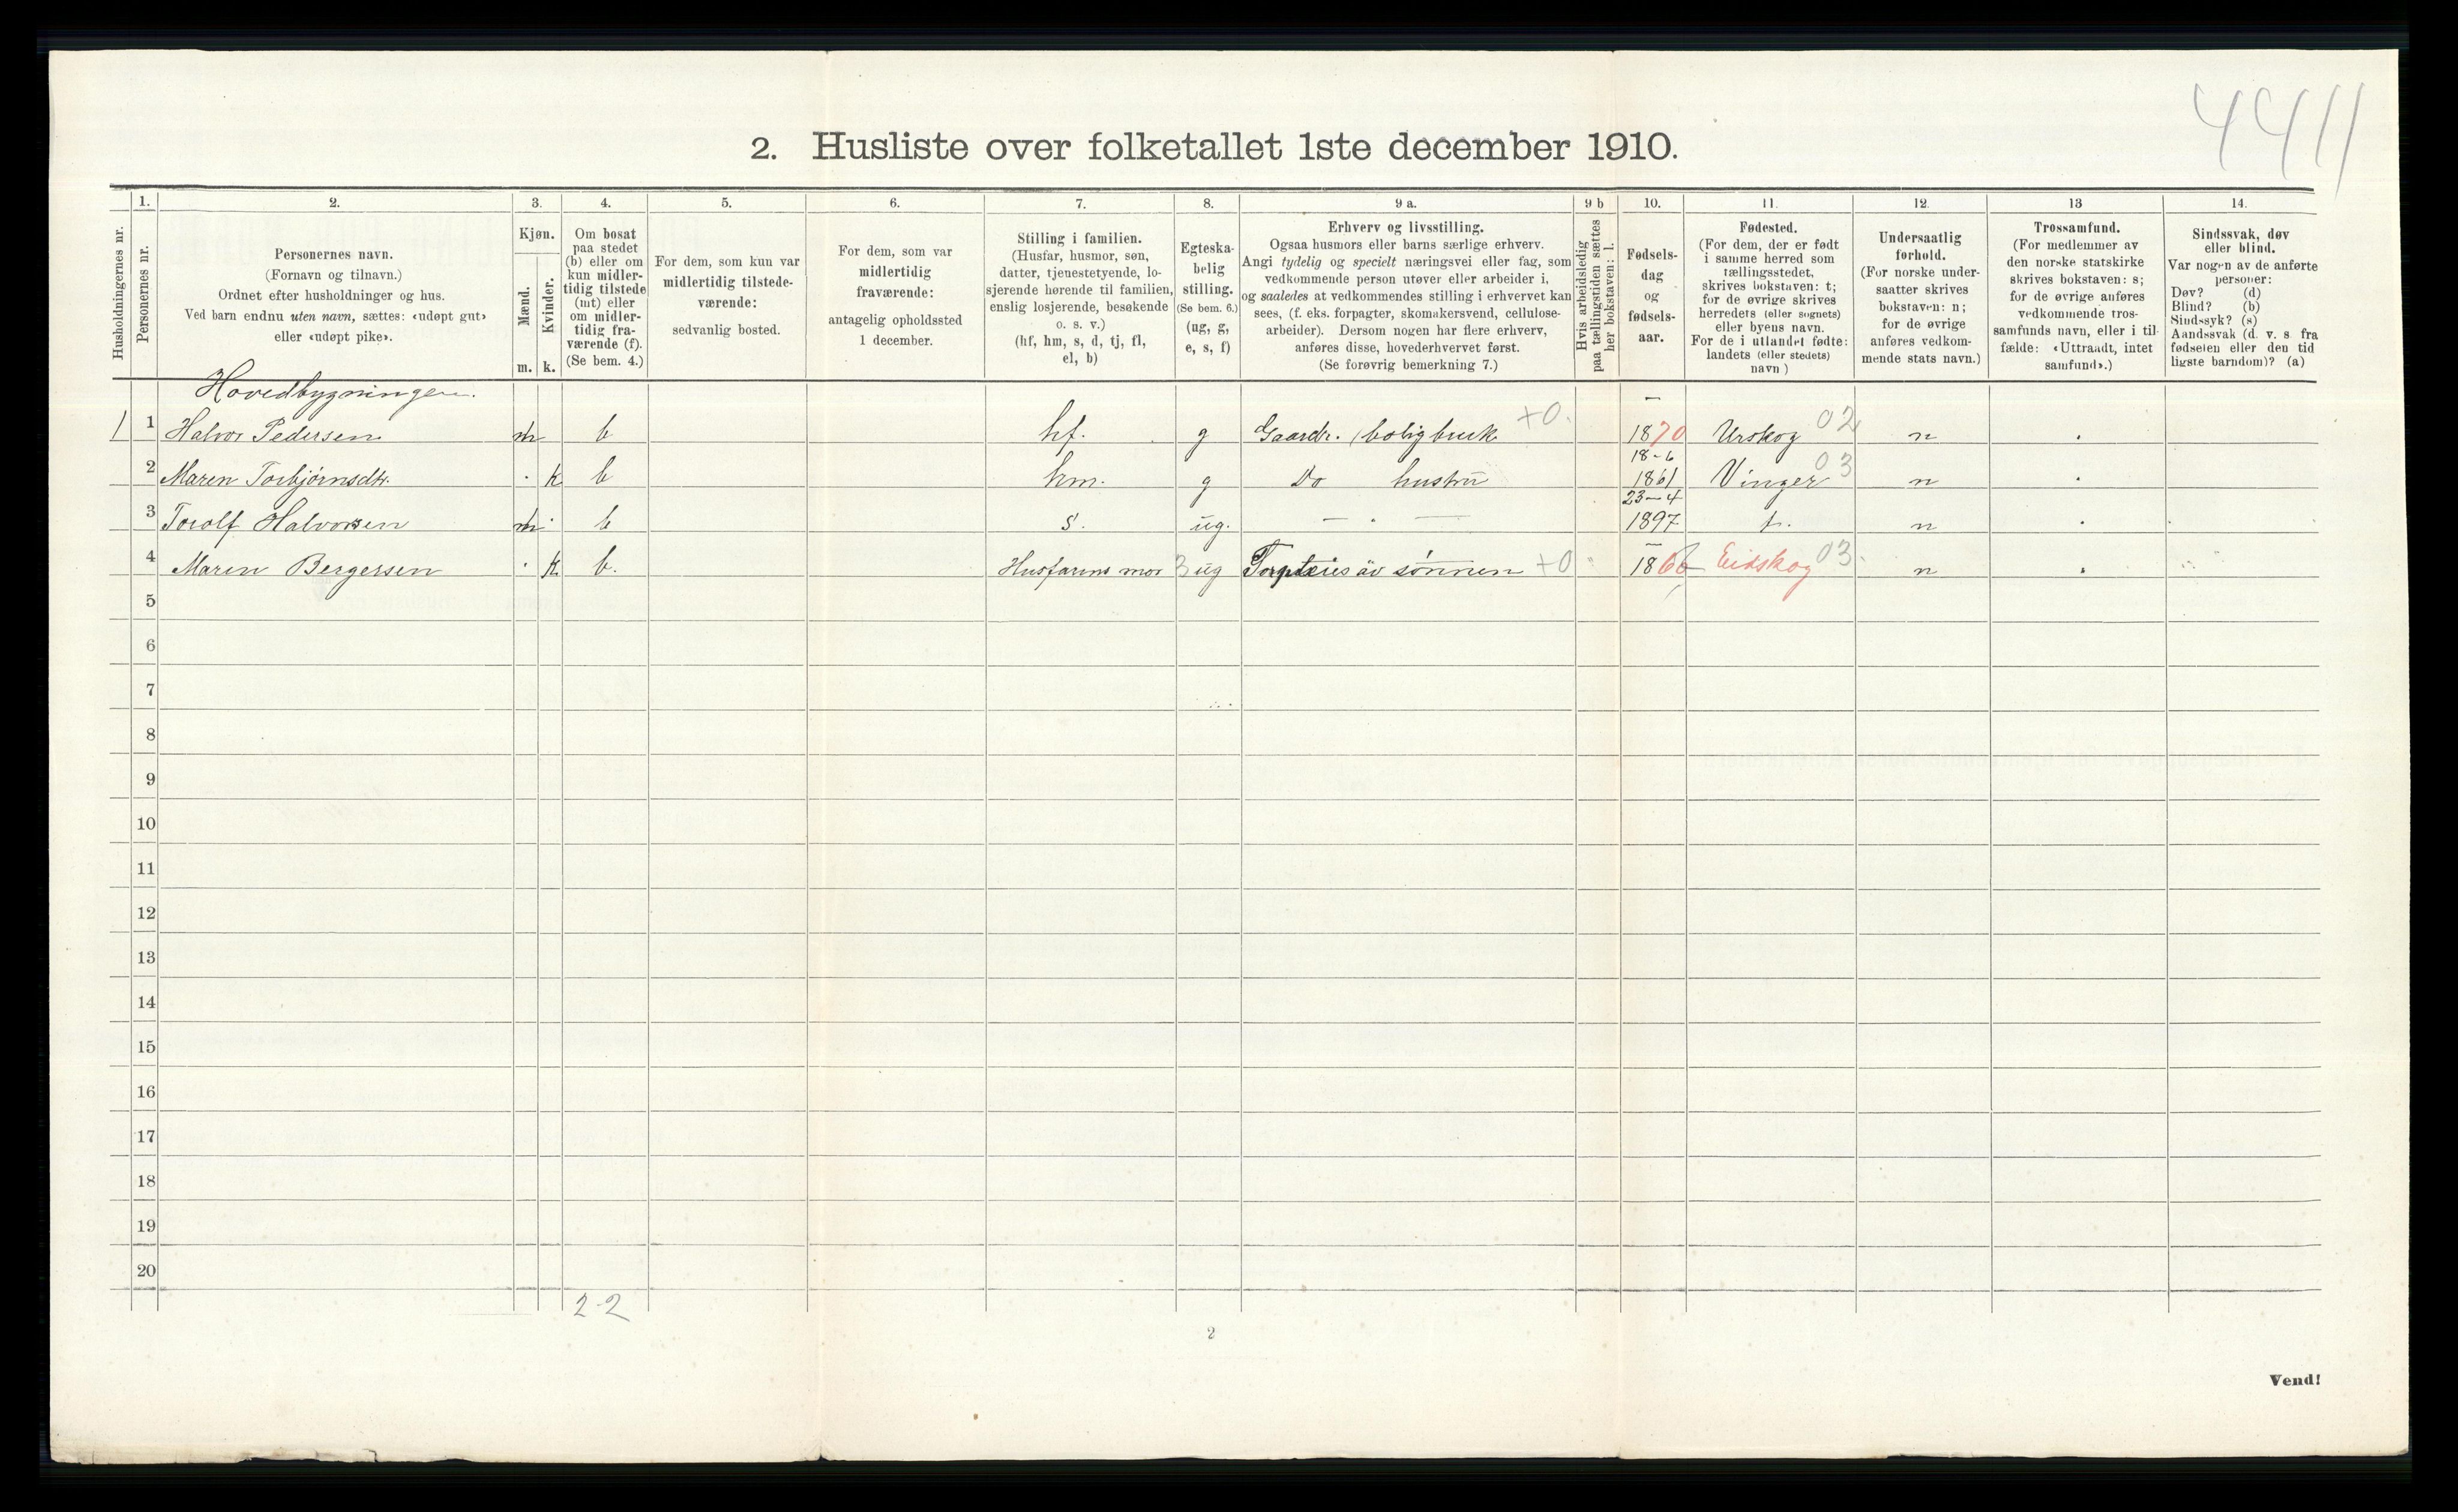 4411
2. Husliste over folketallet 1ste december 1910.
Husholdningernes nr.
1.
Personernes nr.
2.
Personernes navn.
(Fornavn og tilnavn.)
Ordnet efter husholdninger og hus.
Ved barn endnu uten navn, sættes: «udøpt gut»
eller «udøpt pike».
3.
Kjøn.
Mænd.
Kvinder.
m. k.
4.
Om bosat
paa stedet
(b) eller om
kun midler-
tidig tilstede
(mt) eller
om midler-
tidig fra-
værende (f).
(Se bem. 4.)
5.
For dem, som kun var
midlertidig tilstede-
værende:
sedvanlig bosted.
6.
For dem, som var
midlertidig
fraværende:
antagelig opholdssted
1 december.
7.
Stilling i familien.
(Husfar, husmor, søn,
datter, tjenestetyende, lo-
sjerende hørende til familien,
enslig losjerende, besøkende
o. s. v.)
(hf, hm, s, d, tj, fl,
el, b)
8.
Egteska-
belig
stilling.
(Se bem. 6.)
(ug, g,
e, s, f)
9 a.
Erhverv og livsstilling.
Ogsaa husmors eller barns særlige erhverv.
Angi tydelig og specielt næringsvei eller fag, som
vedkommende person utøver eller arbeider i,
og saaledes at vedkommendes stilling i erhvervet kan
sees, (f. eks. forpagter, skomakersvend, cellulose-
arbeider). Dersom nogen har flere erhverv,
anføres disse, hovederhvervet først.
(Se forøvrig bemerkning 7.)
9 b
Hvis arbeidsledig
paa tællingstiden sættes
her bokstaven: l.
10.
Fødsels-
dag
og
fødsels-
aar.
11.
Fødested.
(For dem, der er født
i samme herred som
tællingsstedet,
skrives bokstaven: t;
for de øvrige skrives
herredets (eller sognets)
eller byens navn.
For de i utlandet fødte:
landets (eller stedets)
navn )
12.
Undersaatlig
forhold.
(For norske under-
saatter skrives
bokstaven: n;
for de øvrige
anføres vedkom-
mende stats navn.)
13
Trossamfund.
(For medlemmer av
den norske statskirke
skrives bokstaven: s;
for de øvrige anføres
vedkommende tros-
samfunds navn, eller i til-
fælde: «Uttraadt, intet
samfund».)
14.
Sindssvak, døv
eller blind.
Var nogen av de anførte
personer:
Døv? (d)
Blind? (b)
Sindssyk? (s)
Aandssvak (d. v. s. fra
fødselen eller den tid
ligste barndom)? (a)
Hovedbygningen.
1 1 Halvor Pedersen m b hf. g Gaardr. (boligbruk +0. 1870 Urskog 02 n
2 Maren Torbjørnsdtr. k b hm. g Do hustru 18-6 1861 Vinger 03 n
3 Torolf Halvorsen m b s. ug. 23-4 1897 t. n
4 Maren Bergersen k b. Husfarens mor 3 ug Forsørges av sønnen +0 Eidskog 03 n
5
6
7
8
9
10
11
12
13
14
15
16
17
18
19
20
2-2
2
Vend!